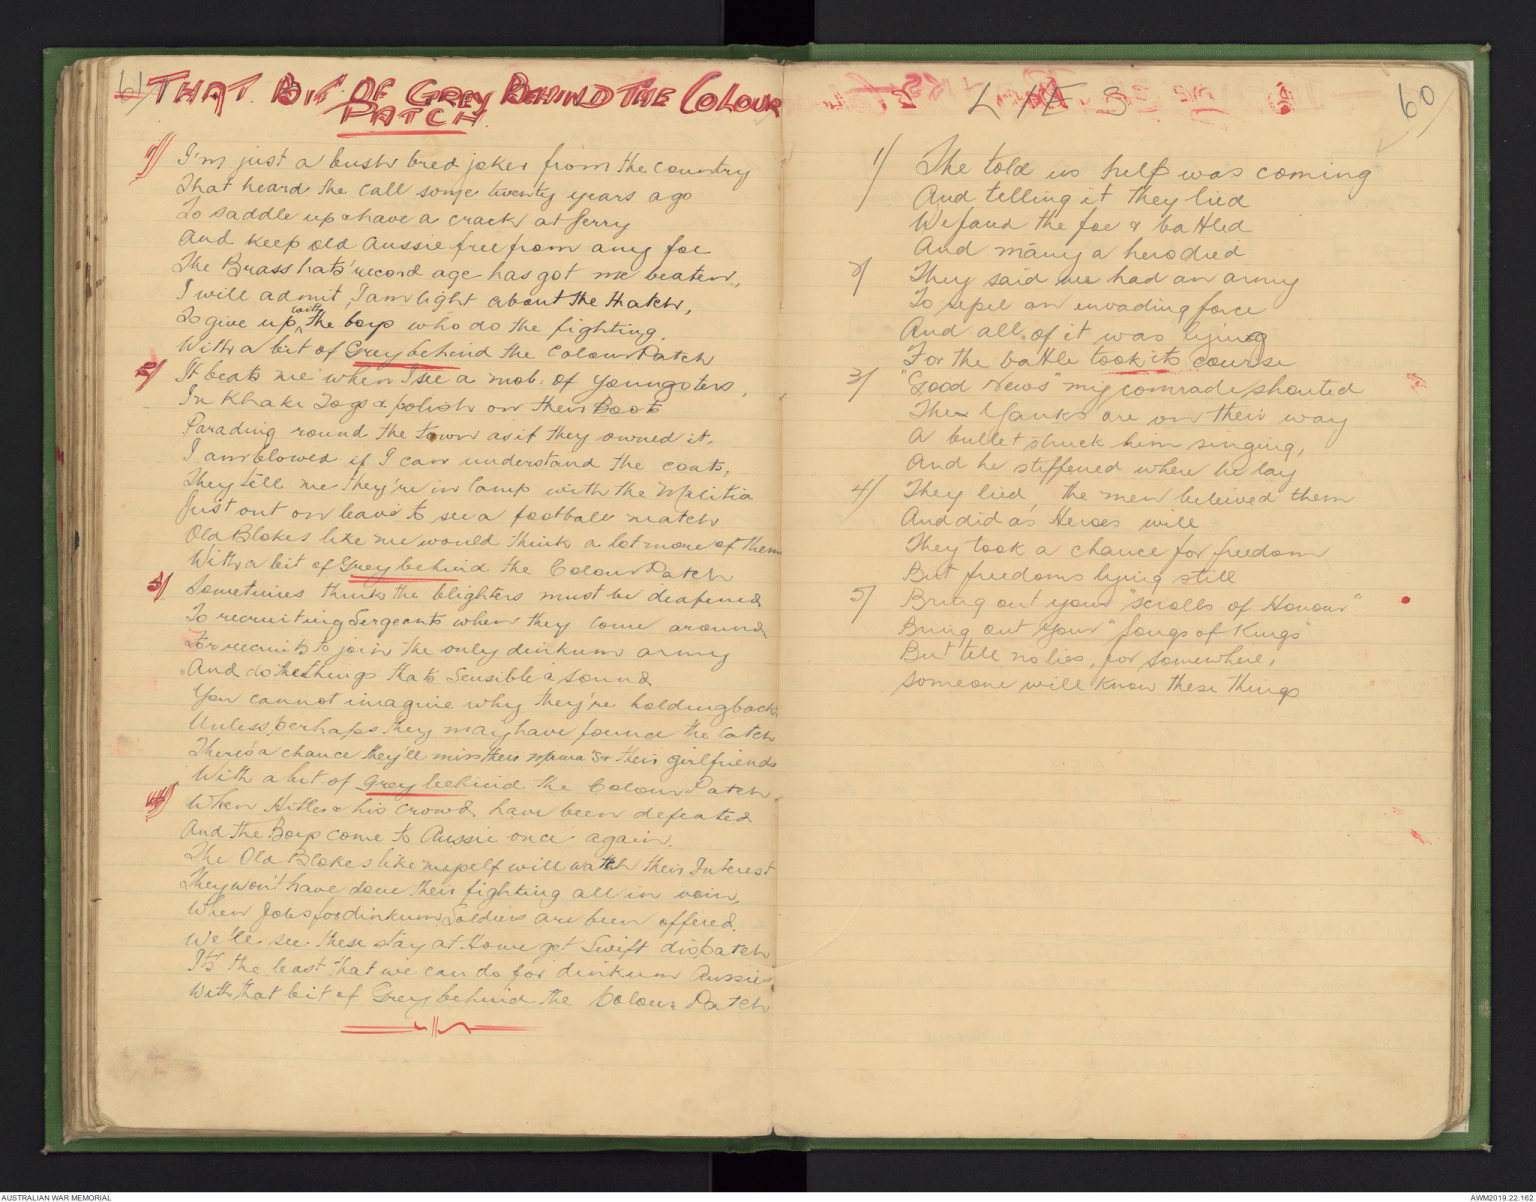 61)
THAT BIT OF GREY BEHIND THE COLOUR
PATCH
1)
I'm just a bush bred joker from the country
That heard the call some twenty years ago
To saddle up & have a crack at Jerry
And keep old Aussie free from any foe
The Brass hats' record age has got me beaten,
I will admit, I am light about the thatch,
To give up, with the boys who do the fighting.
With a bit of Grey behind the Colour Patch
2)
It beats me when I see a mob of youngsters,
In Khaki Togs & polish on their Boots
Parading round the town as if they owned it.
I am blowed if I can understand the coats,
They tell me they're in Camp with the Militia
Just out on leave to see a football match
Old Blokes like me would think a lot more of them
With a bit of Grey behind the Colour Patch
3)
Sometimes think the blighters must be deafened
To recruiting Sergeants when they come around.
For recruits to join the only dinkum army
And do the things that's Sensible & Sound.
You cannot imagine why they're holding back
Unless perhaps they may have found the Catch
There's a chance they'll miss their Mama's & their girlfriends
With a bit of Grey behind the Colour Patch.
4)
When Hitler & his crowd have been defeated
And the Boys come to Aussie once again.
The Old Blokes like myself will watch their Interest
They won't have done their fighting all in vain,
When Jobs for dinkum Soldiers are been offered.
We'll see these stay at Home get Swift dispatch
It's the least that we can do for dinkum Aussies
With that bit of Grey behind the Colour Patch
60)
LIES
1/
The told us help was coming
And telling it they lied
We faud the foe & battled
And many a hero died
2/
They said we had an army
To repel an envading force
And all of it was lying
For the battle took its course
3/
"Good News" my comrade shouted
The Yanks are on their way
A bullet struck him singing,
And he stiffened where he lay
4/
They lied, the men beleived them
And did as Heroes will
They took a chance for freedom
But freedoms lying still
5/
Bring out your "scrolls of Honour"
Bring out your "Songs of Kings"
But tell no lies, for somewhere,
Someone will know these things
AUSTRALIAN WAR MEMORIAL
AWM2019.22.162